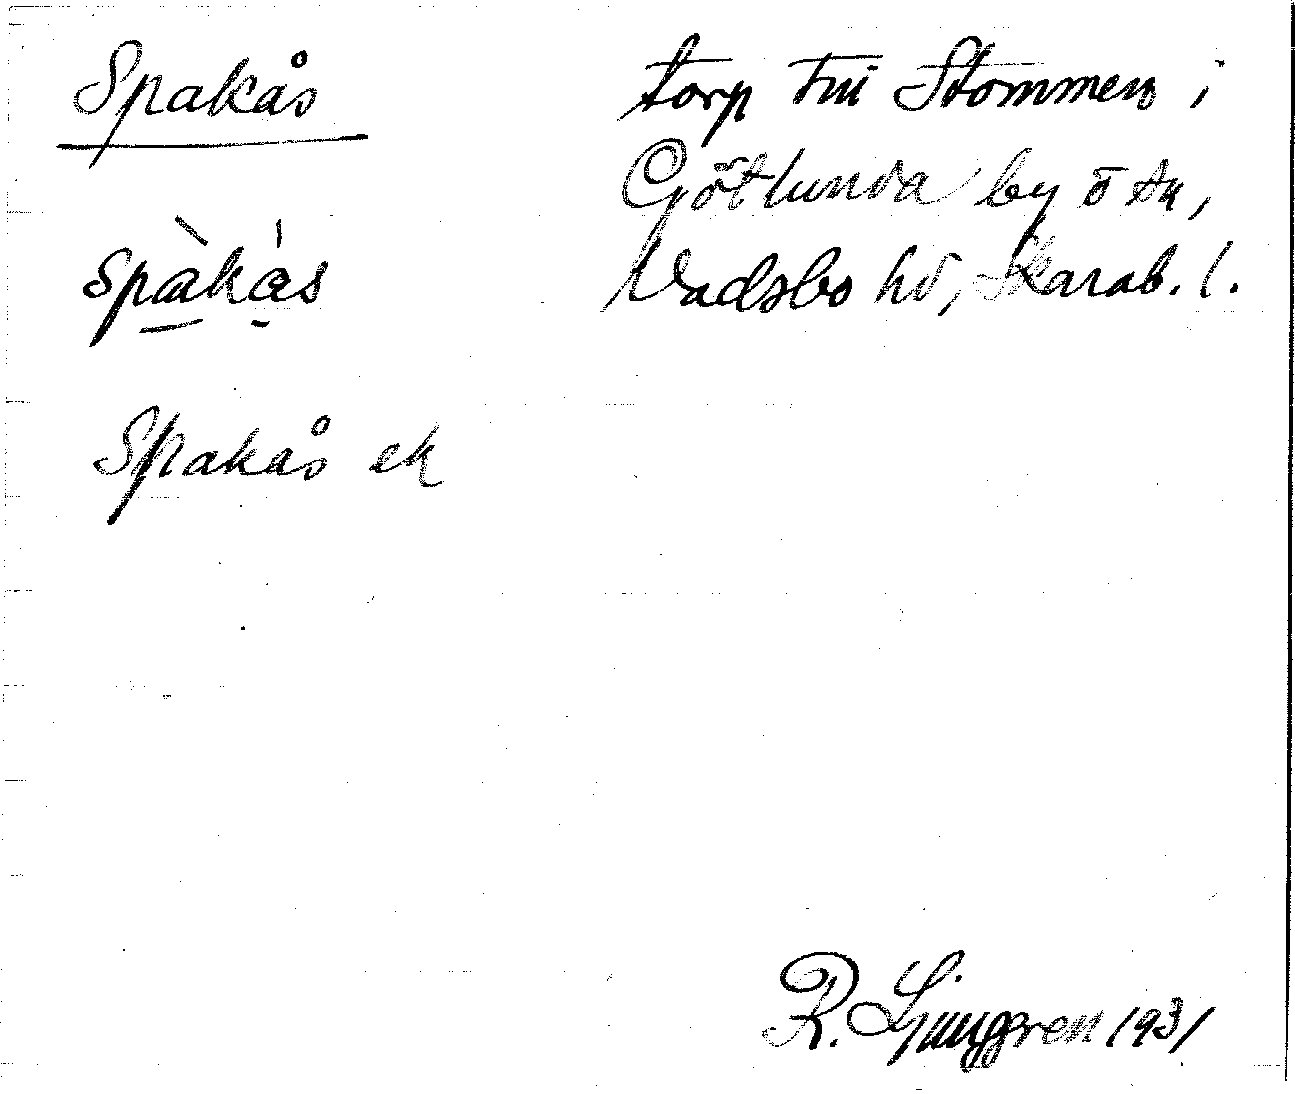 Spakås
spàkás
Spakås ek
torp till Stommen i
Götlunda by o sn,
Vadsbo hd, Skarab. l.
R. Ljunggren 1931